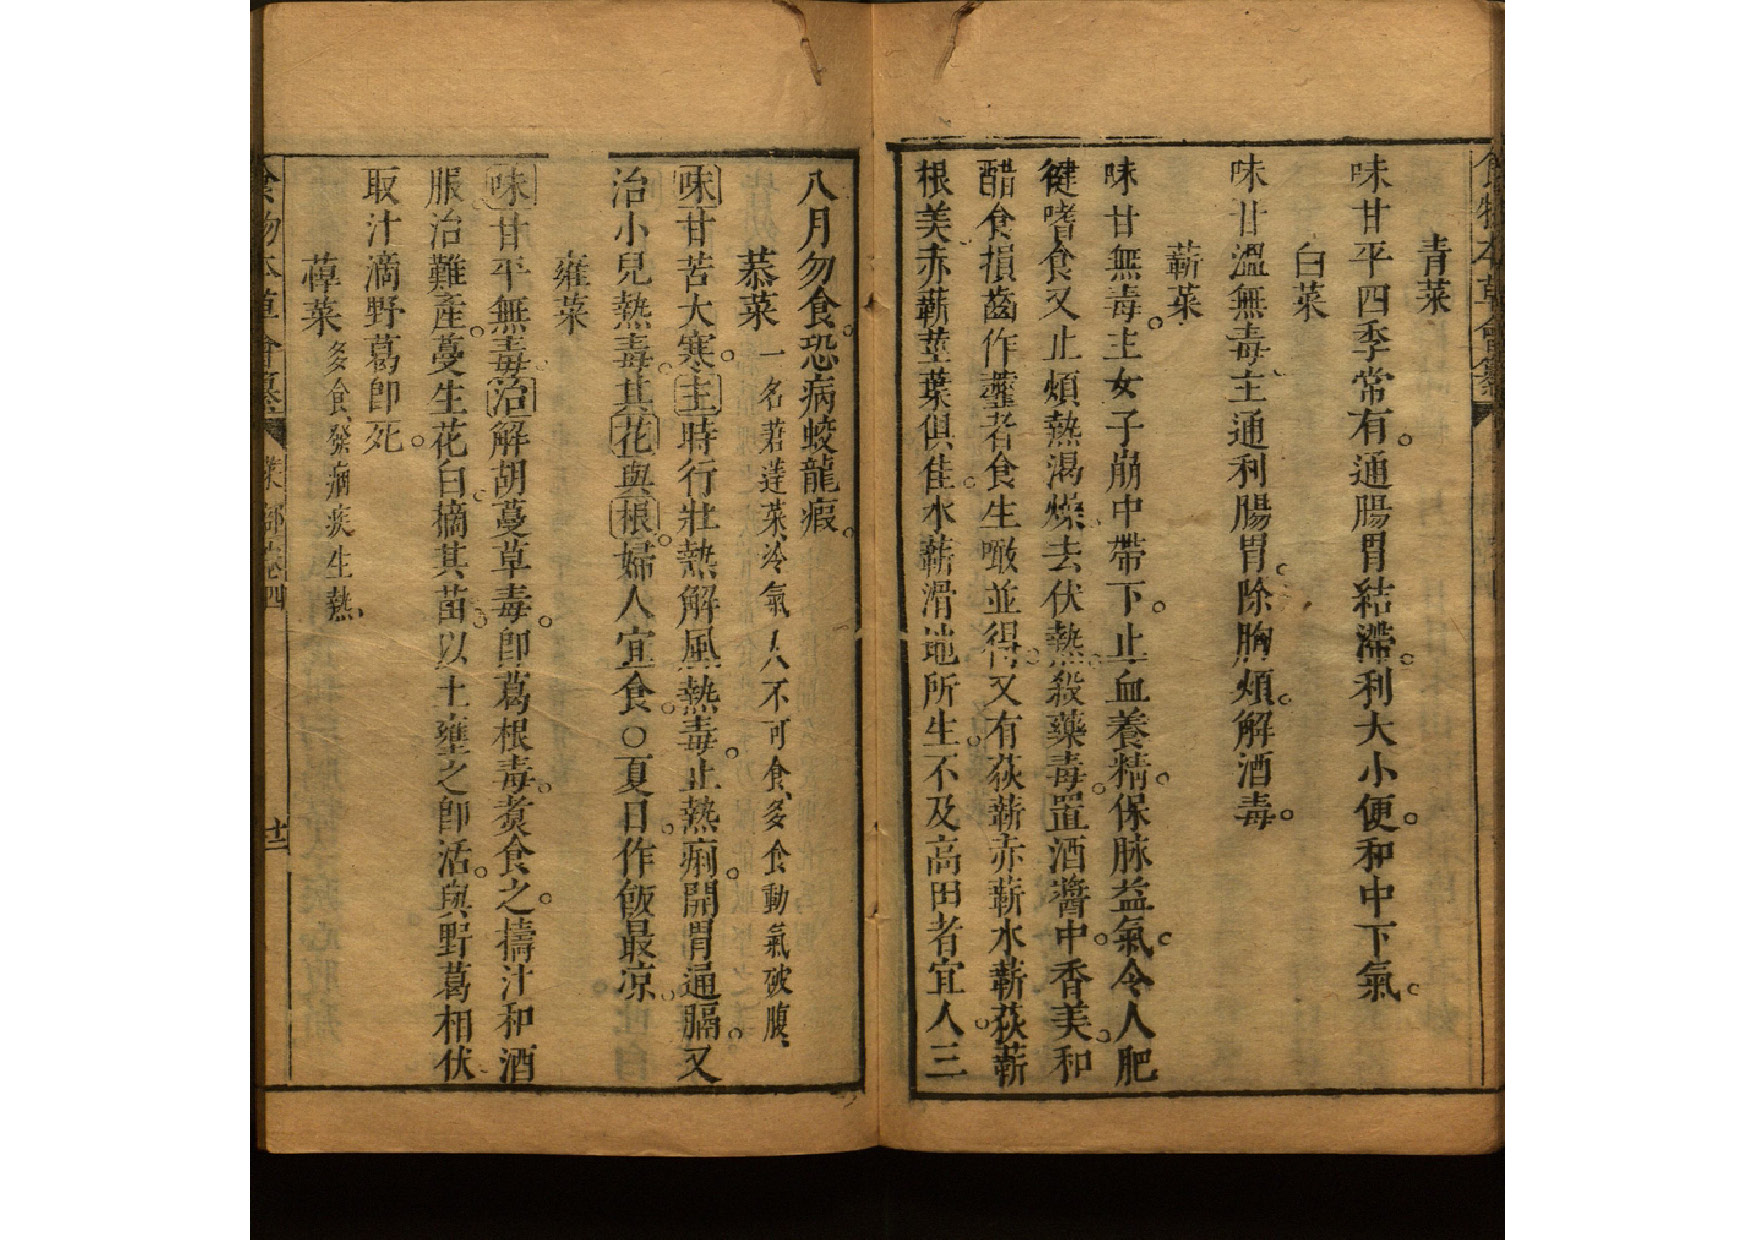 青菜
味甘平四季常有。通腸胃結滯。利大小便。和中下氣。
白菜
味甘溫無毒主通利腸胃。除胸煩。解酒毒。
蘄菜
味甘無毒。主女子崩中帶下。止血養精。保脉益氣。令人肥
健嗜食又止煩熱渴燥去伏熱。殺藥毒。置酒醬中。香美。和
醋食損齒作虀者食生噉並得。又有荻蘄赤蘄水蘄荻蘄
根美赤蘄莖葉俱佳。水蘄滑地所生。不及高田者宜人。三
八月勿食。恐病蛟龍瘕。
菾菜 一名莙薘菜、冷氣人不可食、多食動氣破腹、
味甘苦大寒。主時行壯熱解風熱毒。止熱痢。開胃通膈。又
治小兒熱毒。其花與根。婦人宜食。○夏日。作飯最凉。
雍菜
味甘平無毒。治解胡蔓草毒。卽葛根毒。煮食之。擣汁和酒
服治難產。蔓生花白。摘其苗。以土壅之卽活。與野葛相伏
取汁滴野葛卽死。
蔊菜 多食、發痼疾生熱、
食物本草會纂 菜部卷四 十二